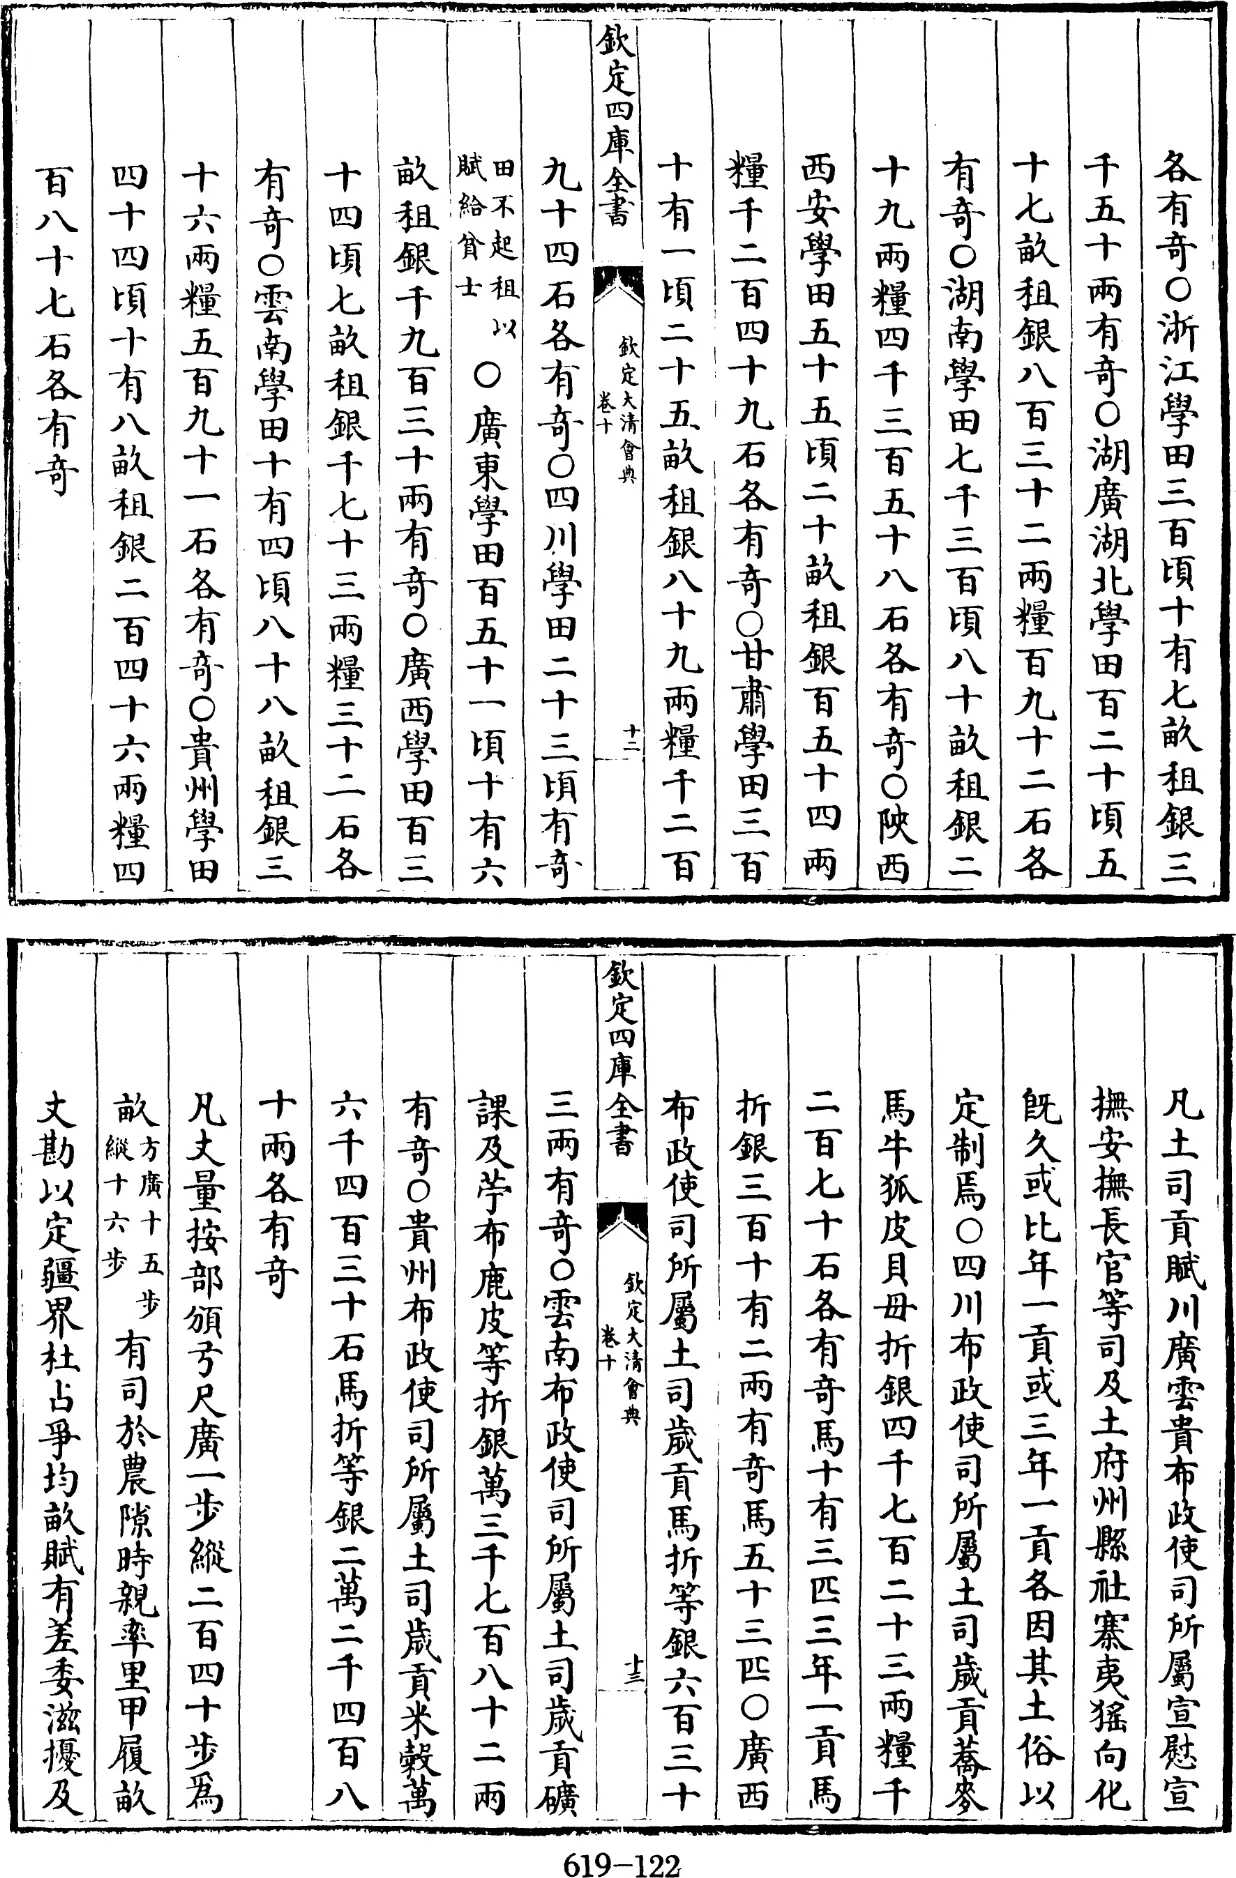 各有奇〇浙江學田三百頃十有七畝租銀三
千五十兩有奇〇湖廣湖北學田百二十頃五
十七畝租銀八百三十二兩糧百九十二石各
有奇〇湖南學田七千三百頃八十畝租銀二
十九兩糧四千三百五十八石各有奇〇陜西
西安學田五十五頃二十畝租銀百五十四兩
糧千二百四十九石各有奇〇甘肅學田三百
十有一頃二十五畝租銀八十九兩糧千二百
欽定四庫全書
欽定大清會典
卷十
十二
九十四石各有奇〇四川學田二十三頃有奇
田不起租以
賦給貧士
〇廣東學田百五十一頃十有六
畝租銀千九百三十兩有奇〇廣西學田百三
十四頃七畝租銀千七十三兩糧三十二石各
有奇〇雲南學田十有四頃八十八畝租銀三
十六兩糧五百九十一石各有奇〇貴州學田
四十四頃十有八畝租銀二百四十六兩糧四
百八十七石各有奇
凡土司貢賦川廣雲貴布政使司所屬宣慰宣
撫安撫長官等司及土府州縣社寨夷猺向化
旣久或比年一貢或三年一貢各因其土俗以
定制焉〇四川布政使司所屬土司歲貢蕎麥
馬牛狐皮貝母折銀四千七百二十三兩糧千
二百七十石各有奇馬十有三匹三年一貢馬
折銀三百十有二兩有奇馬五十三匹〇廣西
布政使司所屬土司歲貢馬折等銀六百三十
欽定四庫全書
欽定大清會典
卷十
十三
三兩有奇〇雲南布政使司所屬土司歲貢礦
課及苧布鹿皮等折銀萬三千七百八十二兩
有奇〇貴州布政使司所屬土司歲貢米穀萬
六千四百三十石馬折等銀二萬二千四百八
十兩各有奇
凡丈量按部頒弓尺廣一步縱二百四十步爲
畝
方廣十五步
縱十六步
有司於農隙時親率里甲履畝
丈勘以定疆界杜占爭均畝賦有差委滋擾及
619-122